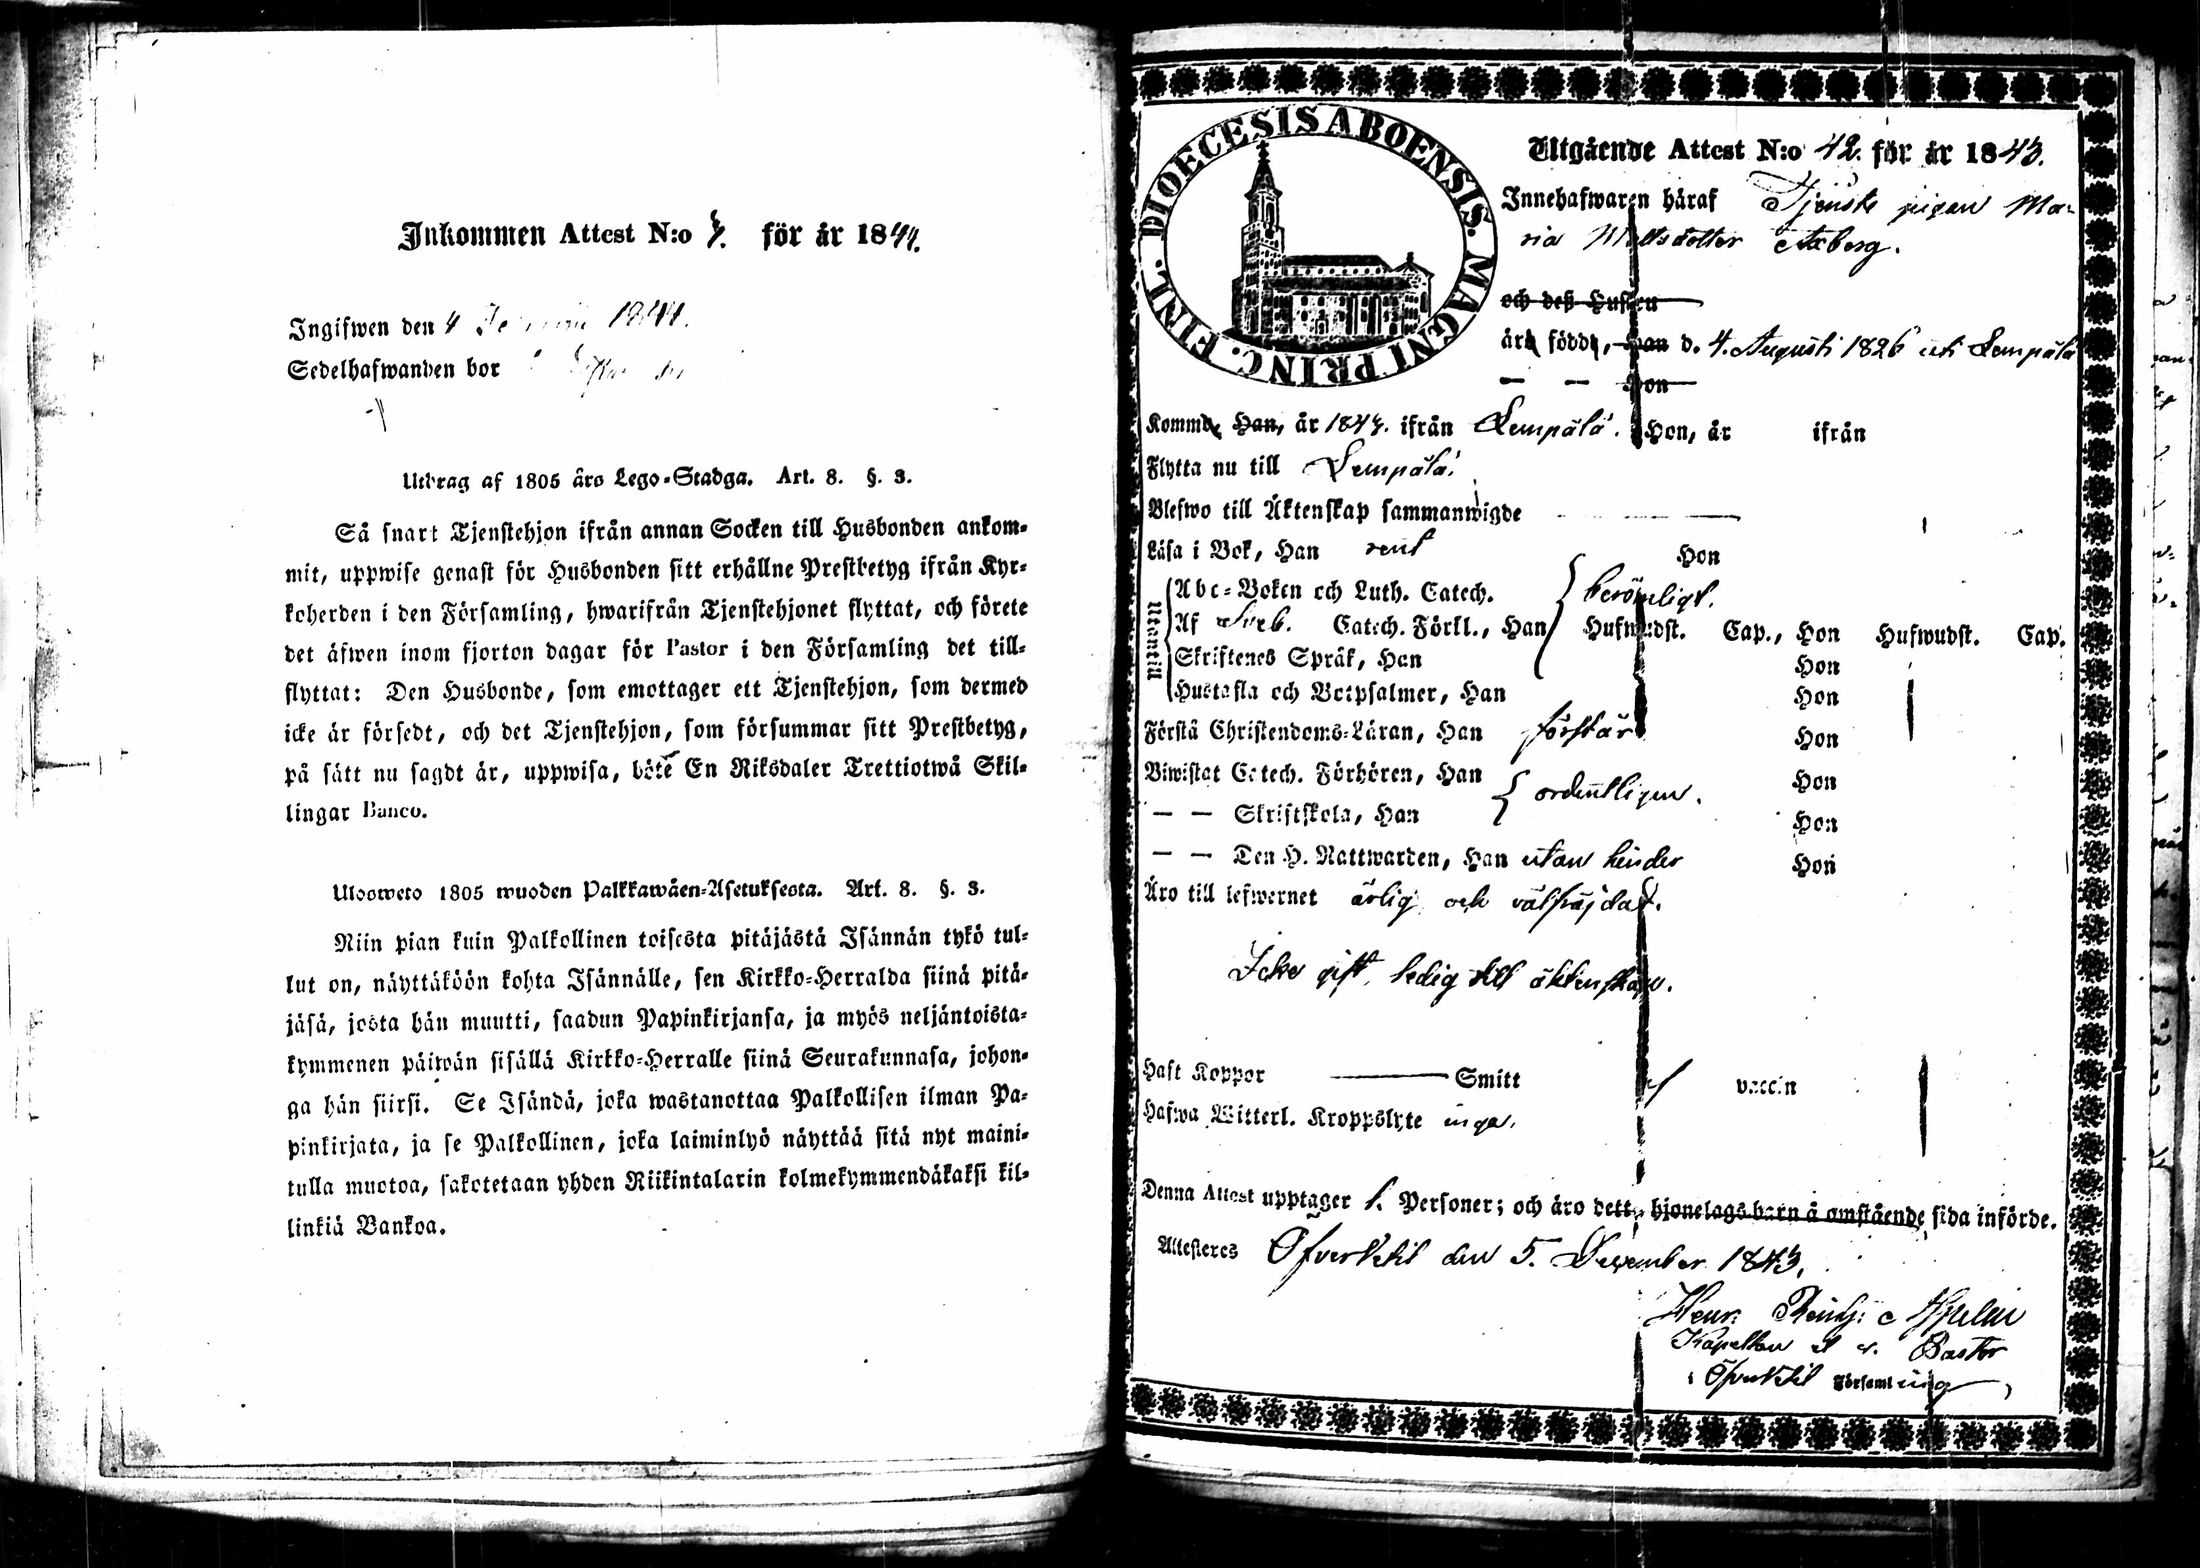 Inkommen Attest N:o för år 1844.
Ingifwen den 4 1844.
Sedelhafwanden bor
Utdrag af 1805 års Lego-Stadga. Art. 8. §. 3.
Så snart Tjenstehjon ifrån annan Socken till Husbonden ankom-
mit, uppwise genast för Husbonden sitt erhållne Prestbetyg ifrån Kyr-
koherden i den Församling, hwarifrån Tjenstehjonet flyttat, och förete
det äfwen inom fjorton dagar för Pastor i den Församling det till-
flyttat: Den Husbonde, som emottager ett Tjenstehjon, som dermed
icke är försedt, och det Tjenstehjon, som försummar sitt Prestbetyg,
på sätt nu sagdt är, uppwisa, böte En Riksdaler Trettiotwå Skil-
lingar Banco.
Ulosweto 1805 wuoden Palkkawäen-Asetuksesta. Art. 8. §. 3.
Niin pian kuin Palkollinen toisesta pitäjästä Isännän tykö tul-
lut on, näyttäköön kohta Isännälle, sen Kirkko-Herralda siinä pitä-
jäsä, josta hän muutti, saadun Papinkirjansa, ja myös neljäntoista-
kymmenen päiwän sisällä Kirkko-Herralle siinä Seurakunnasa, johon-
ga hän siirsi. Se Isändä, joka wastanottaa Palkollisen ilman Pa-
pinkirjata, ja se Palkollinen, joka laiminlyö näyttää sitä nyt maini-
tulla muotoa, sakotetaan yhden Riikintalarin kolmekymmendäkaksi kil-
linkiä Bankoa.
DIOECESIS ABOENSIS. MAGNI PRINC. FINL.
Utgående Attest N:o 42. för år 1843.
Innehafwaren häraf Tjenste pigan Ma-
ria Mattsdotter Axberg.
och deß Hustru
äro födde, Han d. 4. Augusti 1826 uti Lempälä
— — Hon
Komme Han, år 1843. ifrån Lempälä. Hon, år ifrån
Flytta nu till Lempälä.
Blefwo till Äktenskap sammanwigde
Läsa i Bok, Han rent Hon
Utantill
Abc-Boken och Luth. Catech. berömligt.
Af Sveb. Catech. Förkl., Han Hufwudst. Cap., Hon Hufwudst. Cap.
Skriftenes Språk, Han Hon
Hustafla och Botpsalmer, Han Hon
Förstå Christendoms-Läran, Han förstår Hon
Biwistat Catech. Förhören, Han ordentligen. Hon
— — Skriftskola, Han Hon
— — Den H. Nattwarden, Han utan hinder Hon
Äro till lefwernet ärlig och välfräjdad.
Icke gift, ledig till äktenskap.
Haft Koppor Smitt vaccin
Hafwa Witterl. Kroppslyte inga.
Denna Attest upptager 1. Personer; och äro dette hjonelags barn å omstående sida införde.
Attesteres Öfverkihl den 5. December 1843.
Henr.
Kapellan Pastor
Öfverkihl Församling